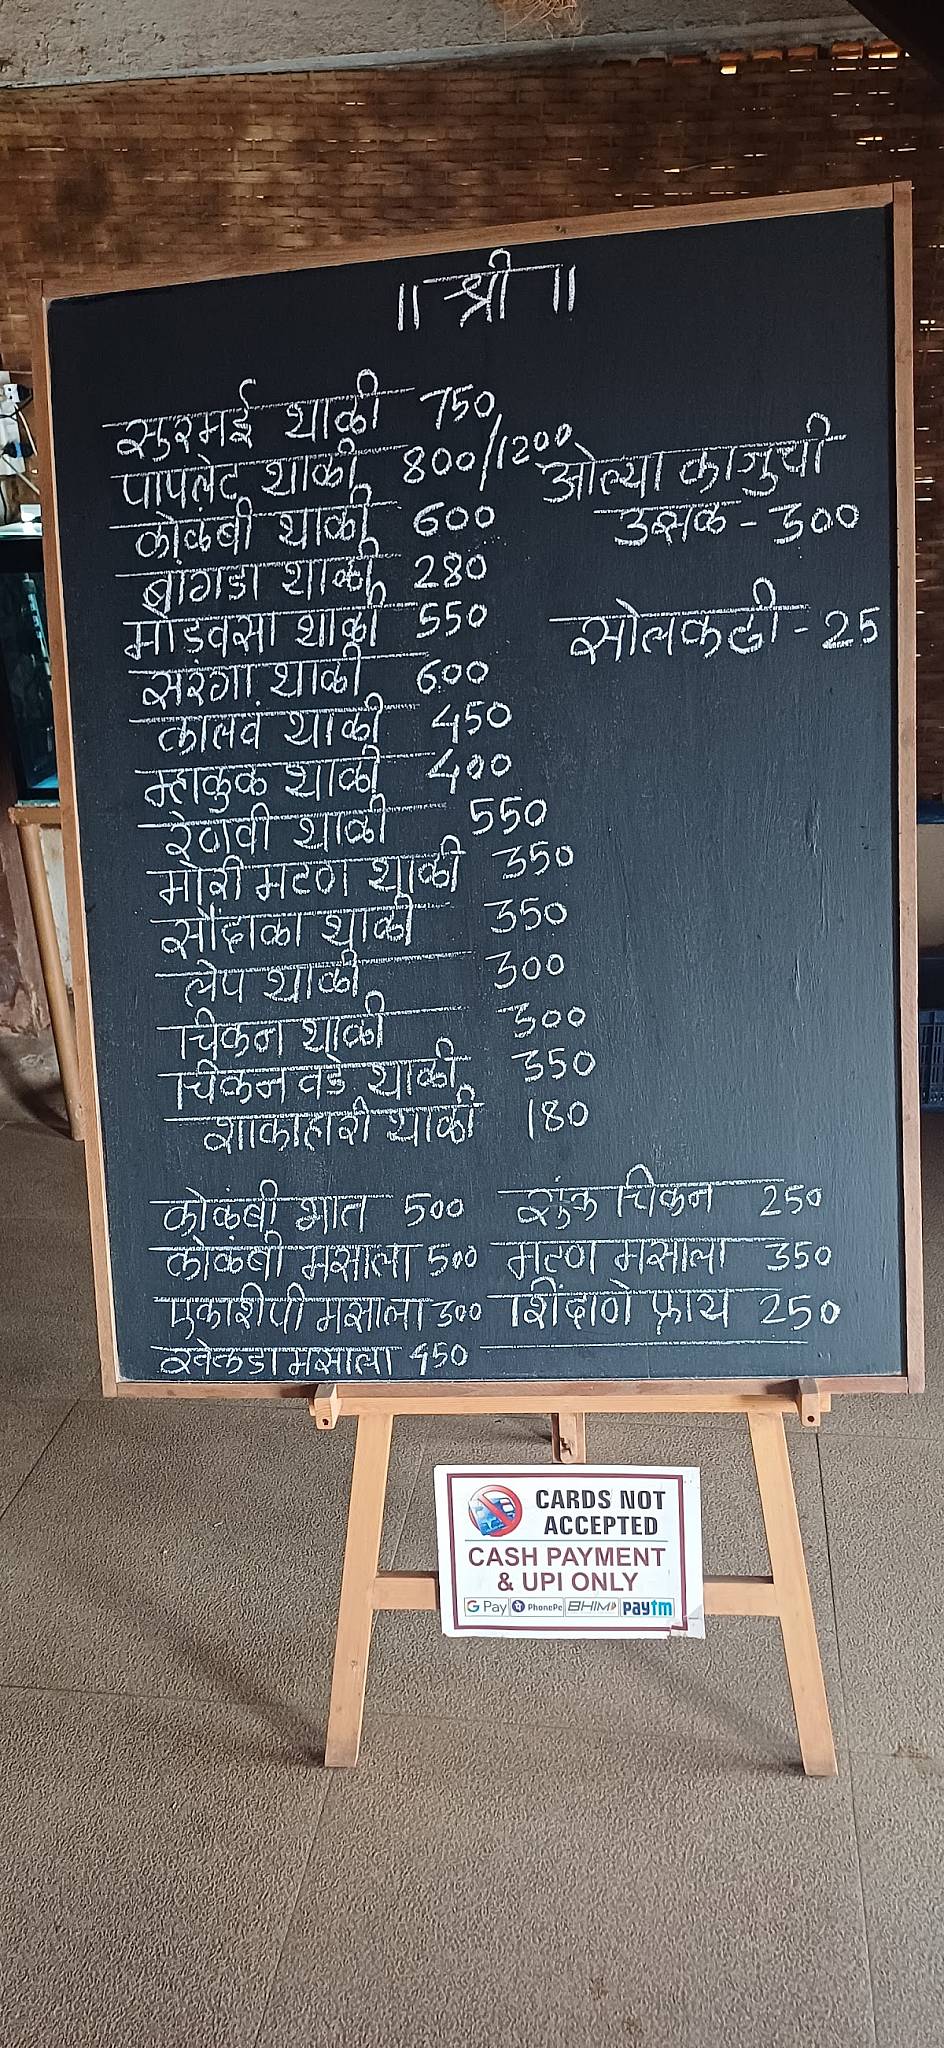 ॥ श्री ॥
सुरमई थाळी 750
पापलेट थाळी 800/1200
कोळंबी थाळी 600
बांगडा थाळी 280
मोडवसा थाळी 550
सरंगा थाळी 600
कालवं थाळी 450
म्हाकुळ थाळी 400
रेणवी थाळी 550
मोरी मटण थाळी 350
सौंदाळा थाळी 350
लेप थाळी 300
चिकन थाळी 300
चिकन वडे थाळी 350
शाकाहारी थाळी 180
ओल्या काजुची
उसळ - 300
सोलकढी - 25
कोळंबी भात 500
कोळंबी मसाला 500
एकाशीपी मसाला 300
खेकडा मसाला 450
सुकं चिकन 250
मटण मसाला 350
शिंदाणे फ्राय 250
CARDS NOT
ACCEPTED
CASH PAYMENT
& UPI ONLY
G Pay PhonePe BHIM paytm